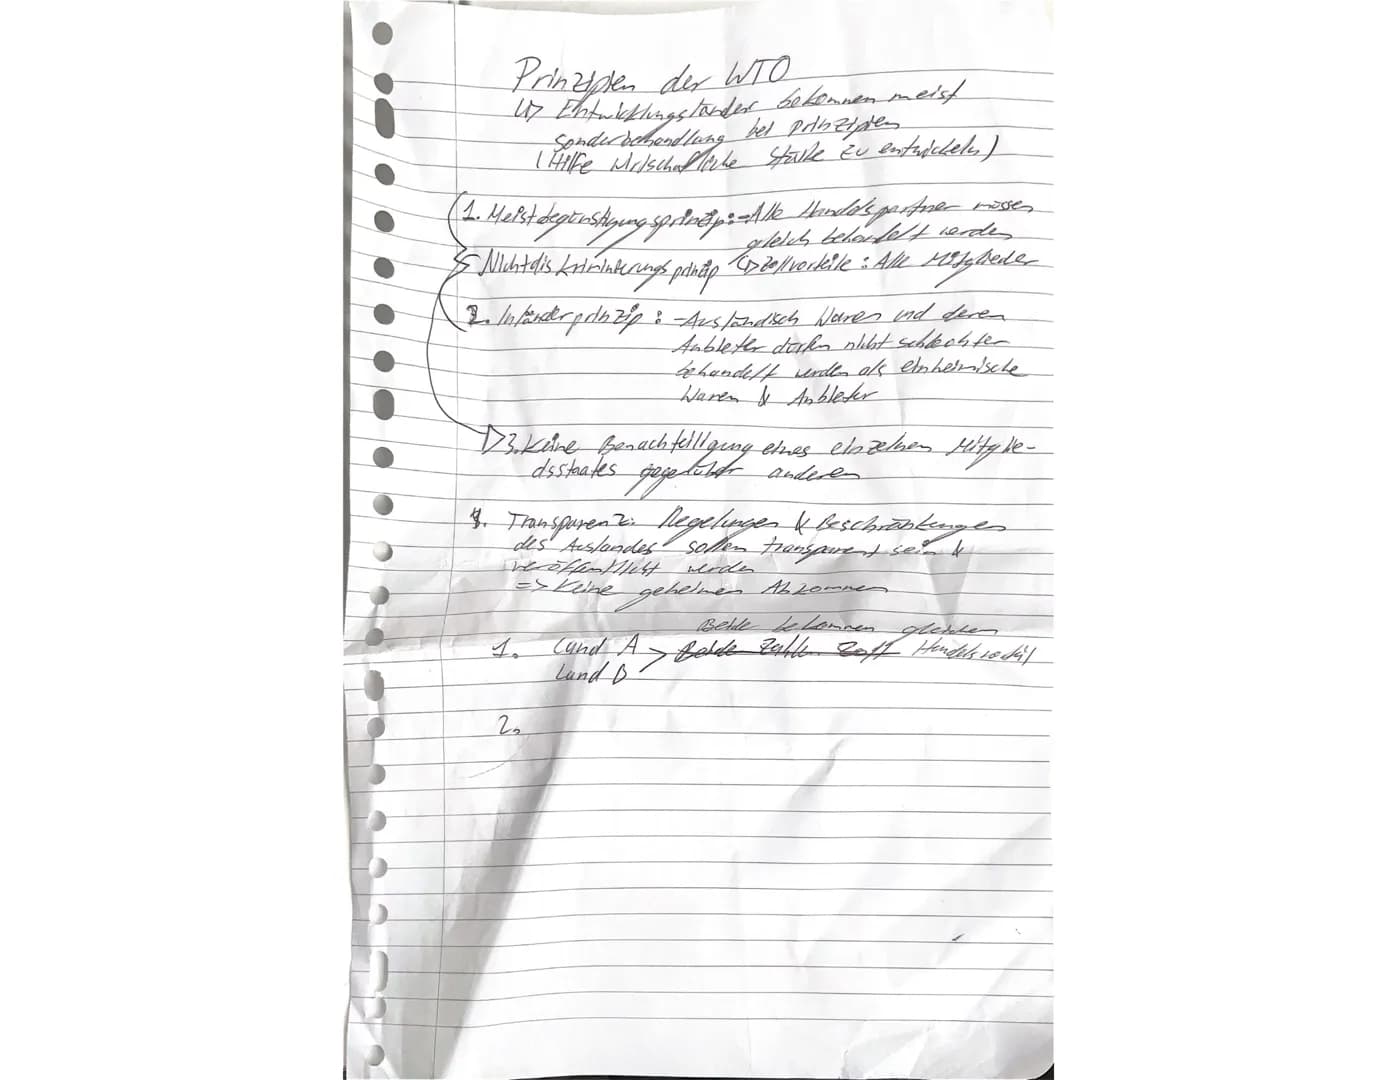 Prinzipien der WTO
↳ Entwicklungsländer bekommen meist
Sonderbehandlung bei Prinzipien
(Hilfe wirtschaftliche Stärke zu entwickeln)
1. Meistbegünstigungsprinzip: - Alle Handelspartner müssen
gleich behandelt werden
Nichtdiskriminierungsprinzip ↳ Zollvorteile: Alle Mitglieder
2. Inländerprinzip: - Ausländisch Waren und deren
Anbieter dürfen nicht schlechter
behandelt werden als einheimische
Waren & Anbieter
3. Keine Benachteiligung eines einzelnen Mitglie-
dsstaates gegenüber anderen
4. Transparenz: Regelungen & Beschränkungen
des Auslandes sollen transparent sein &
veröffentlicht werden
=> Keine geheimen Abkommen
Beide bekommen gleichen
1. Land A > Beide Zahlen Zoll Handelsvorteil
Land B
2.